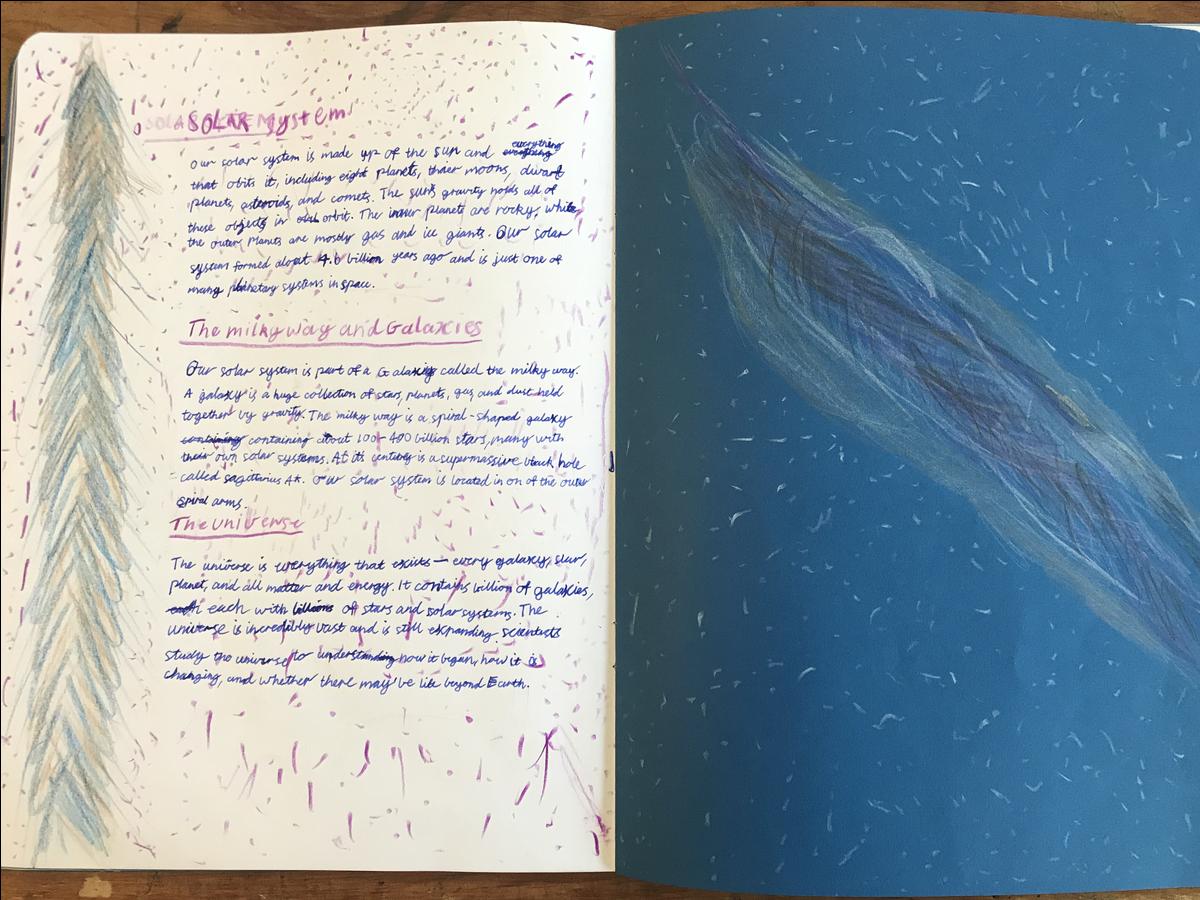 SOLAR System
Our solar system is made up of the sun and everything
that obits it, including eight planets, thier moons, dwarf
planets, asteroids, and comets. The sun's gravity holds all of
these objects in orbit. The inner planets are rocky, while
the outer planets are mostly gas and ice giants. Our solar
system formed about 4.6 billion years ago and is just one of
many planetary systems in space.
The milky way and Galaxies
Our solar system is part of a Galaxy called the milky way.
A galaxy is a huge collection of stars, planets, gas, and dust held
together by gravity. The milky way is a spiral-shaped galaxy
containing containing about 100-400 billion stars, many with
their own solar systems. At its is a supermassive black hole
called sagittarius A*. Our solar system is located in on of the outer
spiral arms.
The Universe
The universe is everything that exists — every galaxy, star,
planet, and all matter and energy. It contains billion of galaxies,
each each with billions of stars and solar systems. The
universe is incredibly vast and is still expanding. scientists
study the universe to understanding how it began, how it is
changing, and whether there may be life beyond Earth.